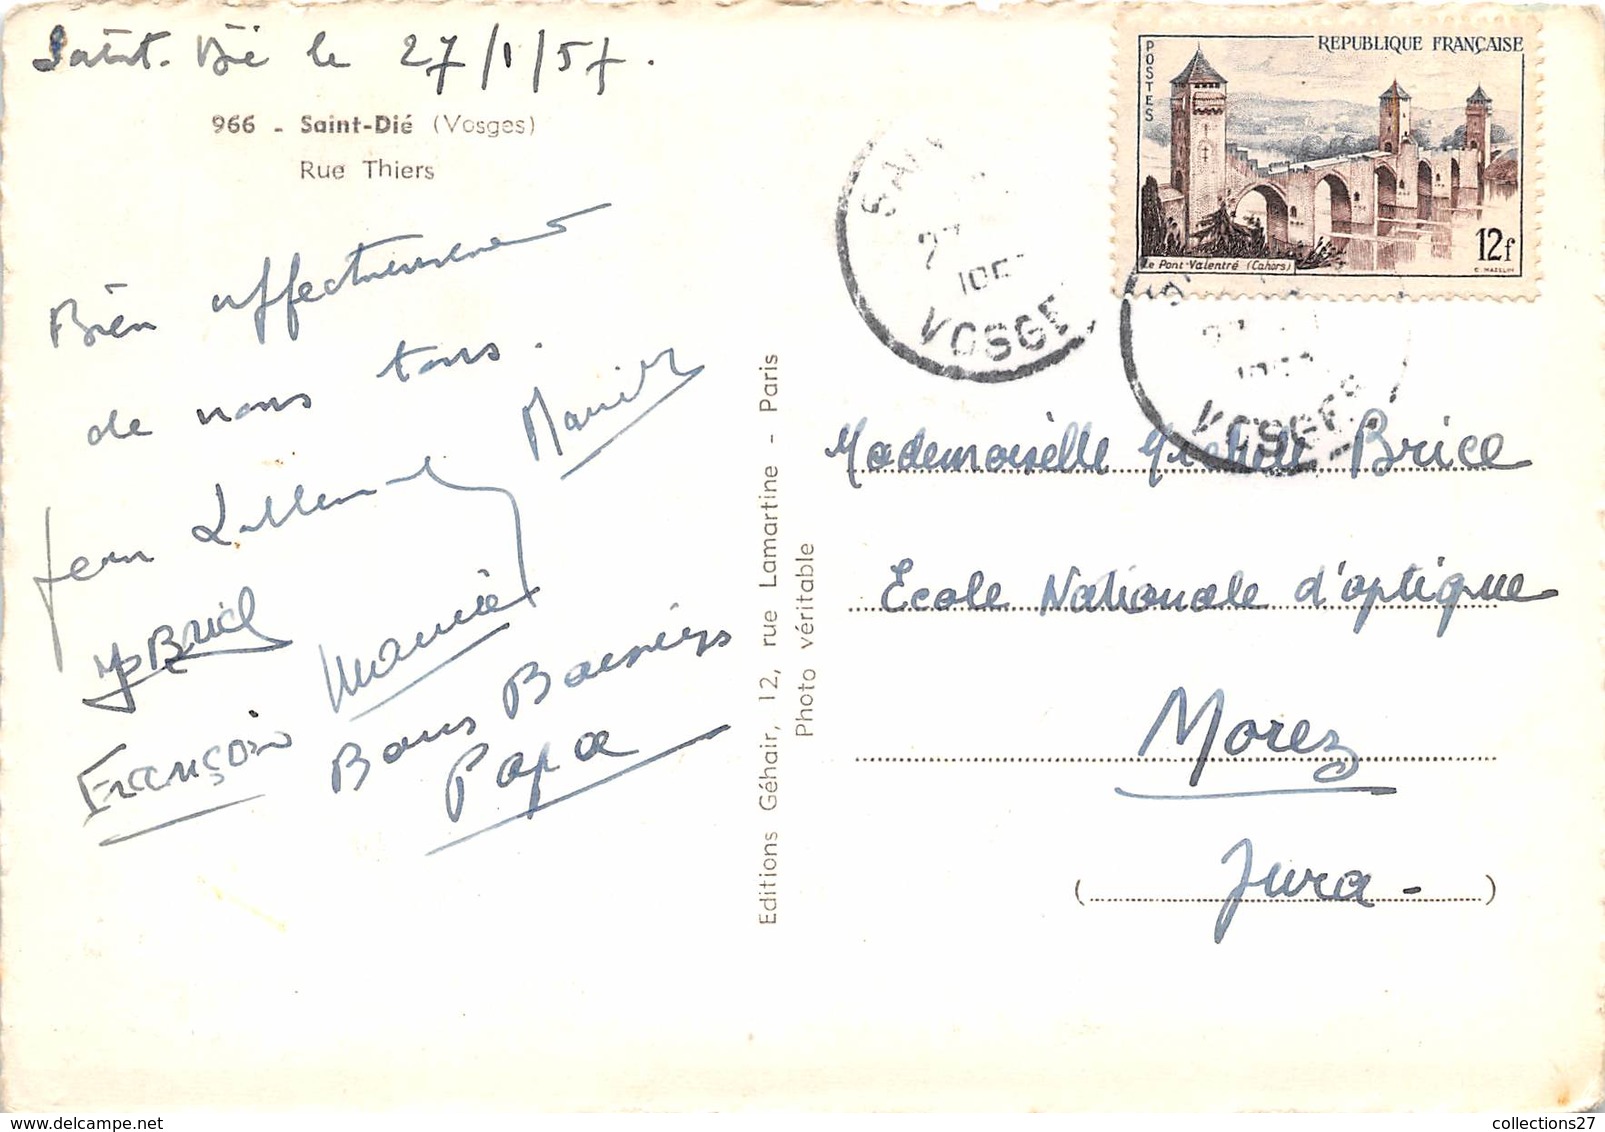 Saint-Dié le 27/1/57.
966 - Saint-Dié (Vosges)
Rue Thiers
Bien affectueusement
de nous tous.
Jean
Brice
François
Bons Baisers
Papa
Editions Géhair, 12, rue Lamartine - Paris
Photo véritable
REPUBLIQUE FRANÇAISE
POSTES
12f
Le Pont Valentré (Cahors)
C. MAZELIN
VOSGES
VOSGES
Mademoiselle Michèle Brice
Ecole Nationale d'optique
Morez
(Jura-)
collections27